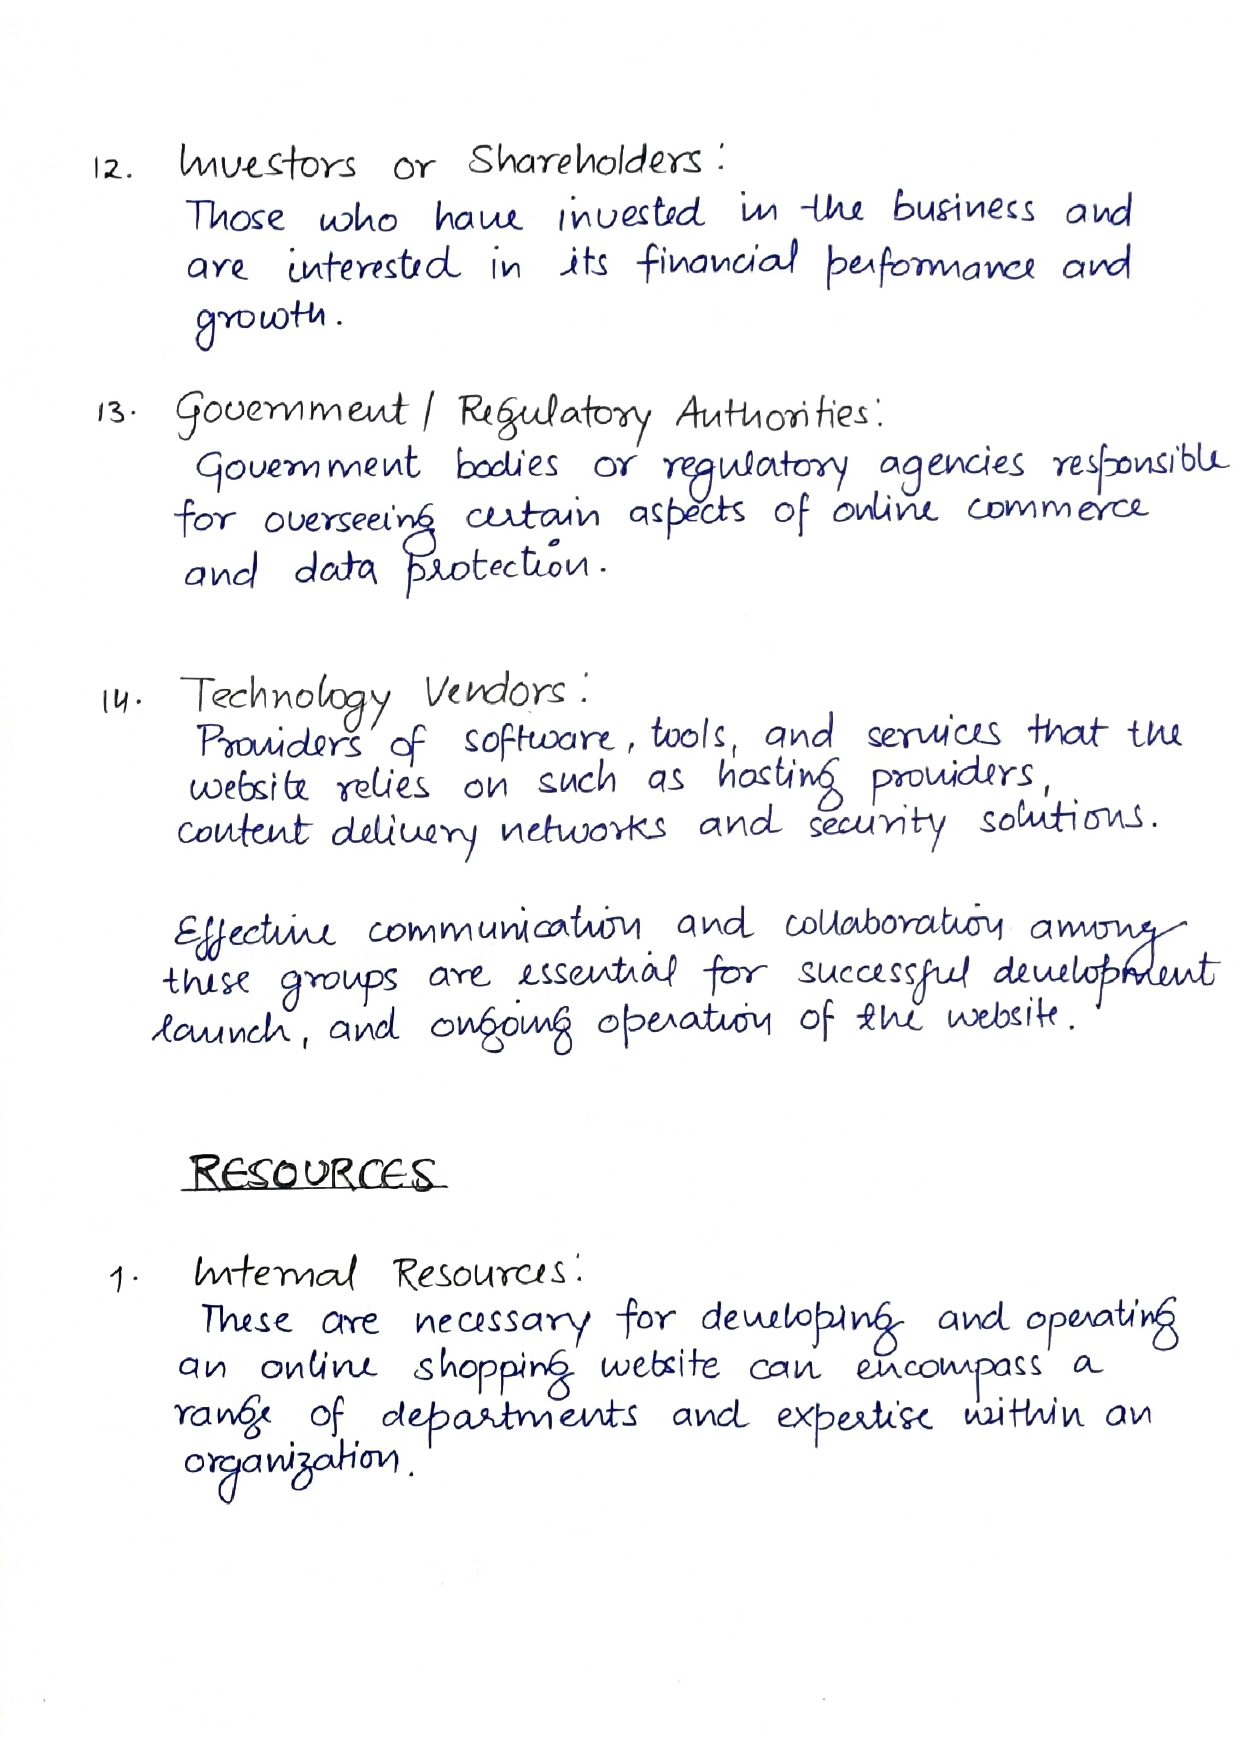 12. Investors or Shareholders:
Those who have invested in the business and
are interested in its financial performance and
growth.
13. Government / Regulatory Authorities:
Government bodies or regulatory agencies responsible
for overseeing certain aspects of online commerce
and data protection.
14. Technology Vendors:
Providers of software, tools, and services that the
website relies on such as hosting providers,
content delivery networks and security solutions.
Effective communication and collaboration among
these groups are essential for successful development
launch, and ongoing operation of the website.
RESOURCES
1. Internal Resources:
These are necessary for developing and operating
an online shopping website can encompass a
range of departments and expertise within an
organization.